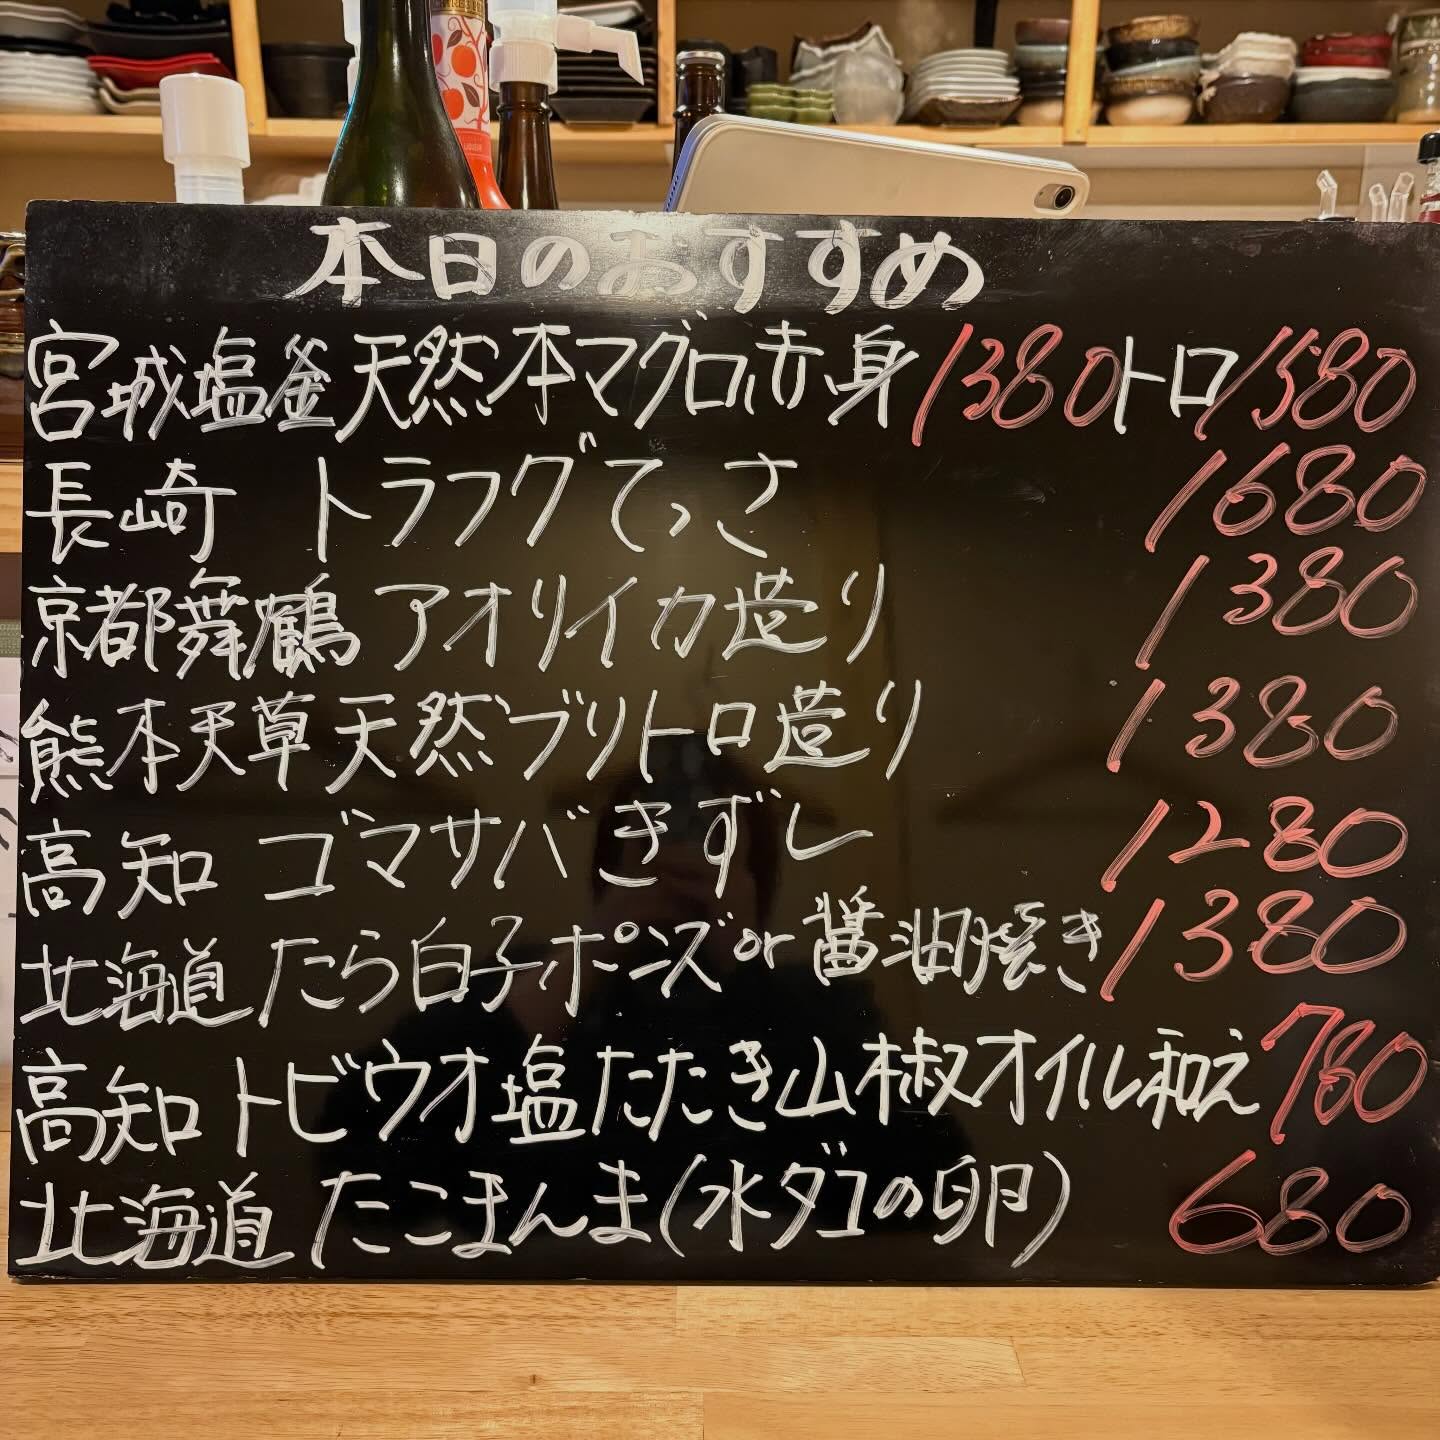 本日のおすすめ
宮城塩釜天然本マグロ赤身1380トロ1580
長崎 トラフグてっさ 1680
京都舞鶴 アオリイカ造り 1380
熊本天草天然ブリトロ造り 1380
高知 ゴマサバきずし 1280
北海道 たら白子ポンズor醤油焼き 1380
高知 トビウオ塩たたき山椒オイル和え 780
北海道 たこまんま(水ダコの卵) 680